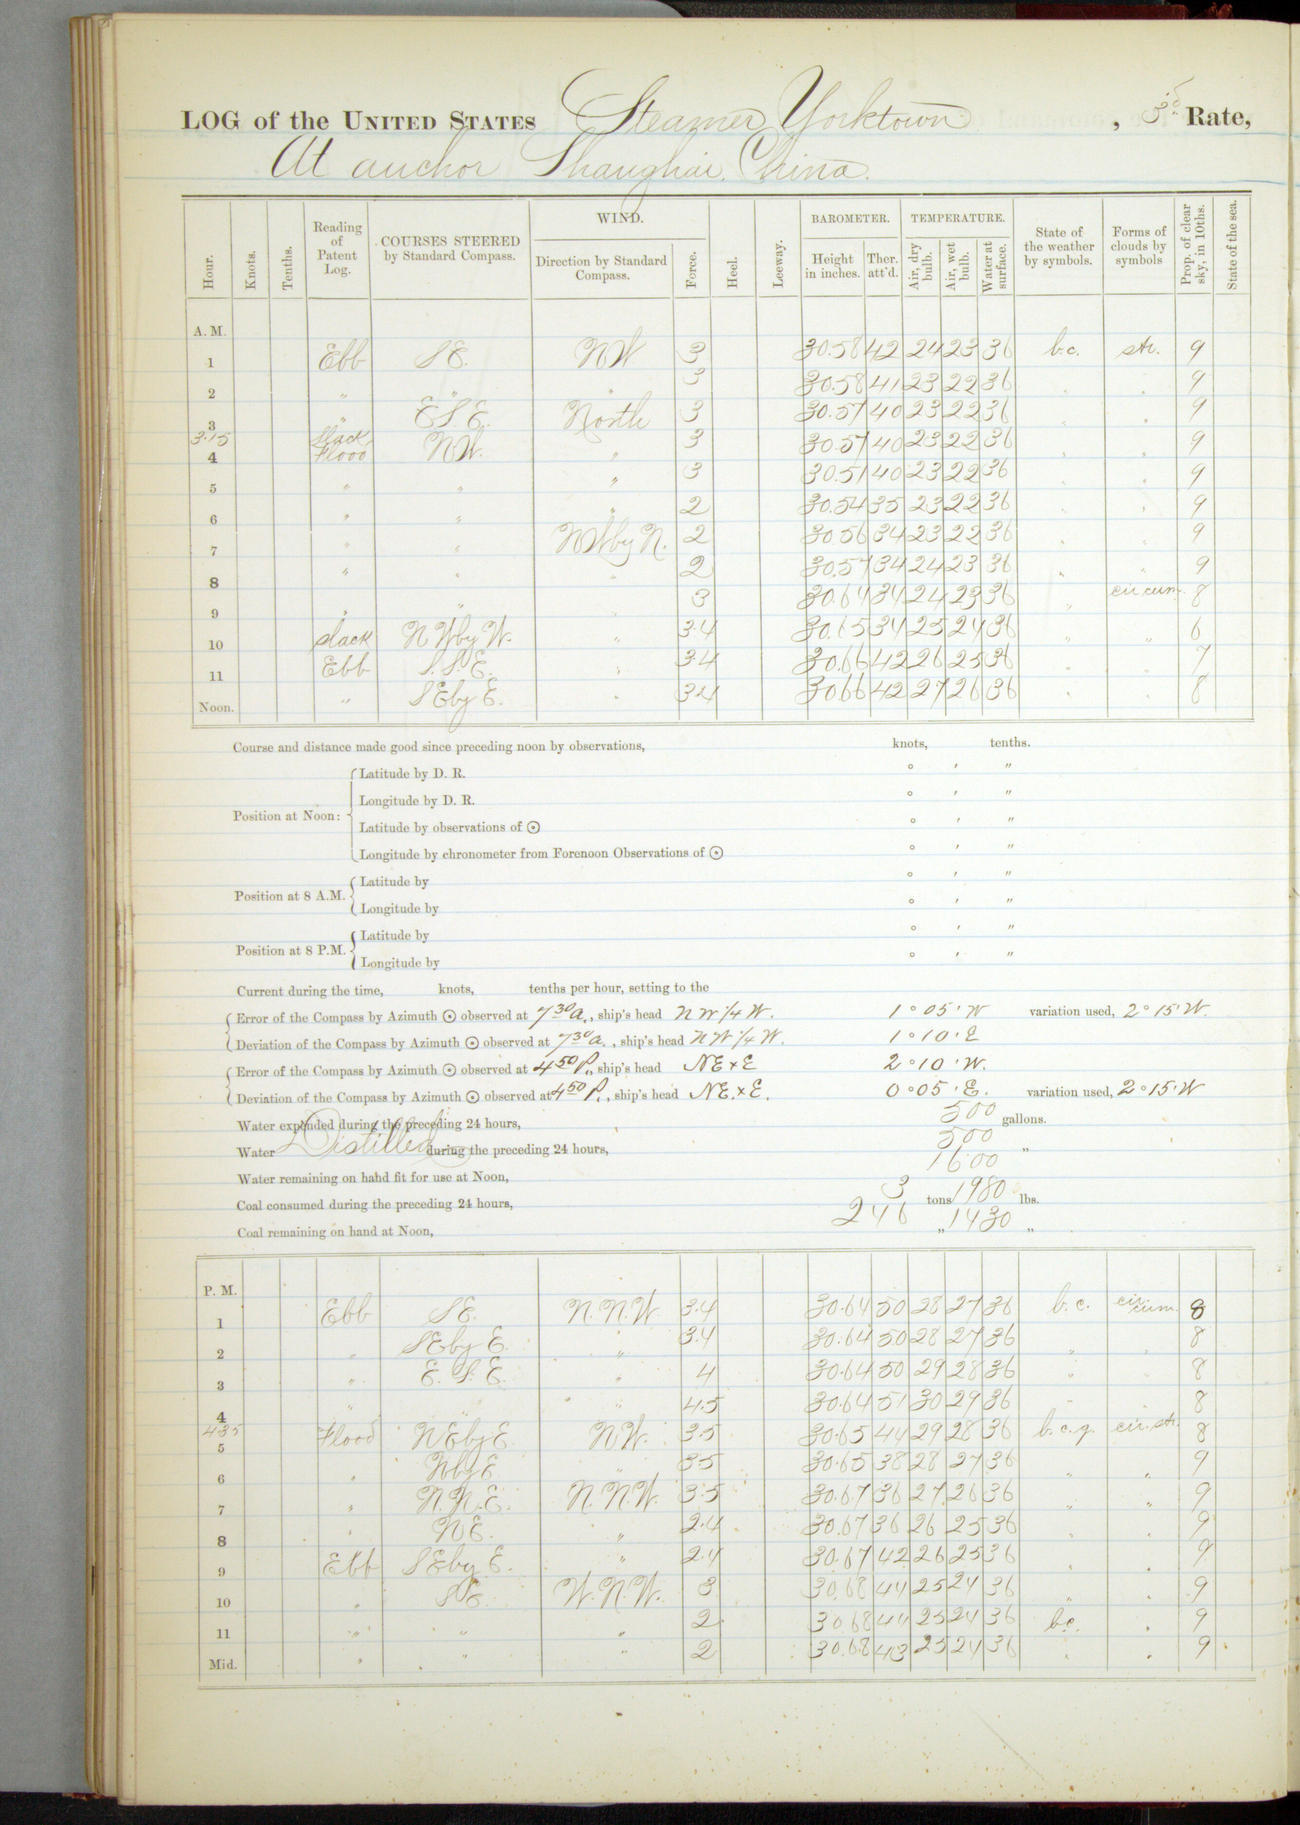 LOG of the UNITED STATES Steamer Yorktown, 3d Rate,
At anchor Shanghai, China.
Hour. Knots. Tenths. Reading of Patent Log. COURSES STEERED by Standard Compass. WIND. Direction by Standard Compass. Force. Heel. Leeway. BAROMETER. Height in inches. Ther. att'd. TEMPERATURE. Air, dry bulb. Air, wet bulb. Water at surface. State of the weather by symbols. Forms of clouds by symbols Prop. of clear sky, in 10ths. State of the sea.
A. M.
1 Ebb SE. NW 3 30.58 42 24 23 36 b.c. str. 9
2 " " " 3 30.58 41 23 22 36 " " 9
3 " E.S.E. North 3 30.57 40 23 22 36 " " 9
3.15 Slack
4 Flood NW. " 3 30.57 40 23 22 36 " " 9
5 " " " 3 30.51 40 23 22 36 " " 9
6 " " " 2 30.54 35 23 22 36 " " 9
7 " " NW by N. 2 30.56 34 23 22 36 " " 9
8 " " " 2 30.57 34 24 23 36 " " 9
9 " " " 3 30.64 34 24 23 36 " cir cum. 8
10 slack NW by W. " 3.4 30.65 34 25 24 36 " " 6
11 Ebb S.S.E. " 3.4 30.66 42 26 25 36 " " 7
Noon. " SE by E. " 3.4 30.66 42 27 26 36 " " 8
Course and distance made good since preceding noon by observations, knots, tenths.
Position at Noon: Latitude by D. R. ° ' "
Longitude by D. R. ° ' "
Latitude by observations of ☉ ° ' "
Longitude by chronometer from Forenoon Observations of ☉ ° ' "
Position at 8 A.M. Latitude by ° ' "
Longitude by ° ' "
Position at 8 P.M. Latitude by ° ' "
Longitude by ° ' "
Current during the time, knots, tenths per hour, setting to the
Error of the Compass by Azimuth ☉ observed at 7 30 a., ship's head NW 1/4 W. 1° 05' W variation used, 2° 15' W.
Deviation of the Compass by Azimuth ☉ observed at 7 30 a., ship's head NW 1/4 W. 1° 10' E
Error of the Compass by Azimuth ☉ observed at 4 50 P., ship's head NE x E 2° 10' W.
Deviation of the Compass by Azimuth ☉ observed at 4 50 P., ship's head NE. x E. 0° 05' E. variation used, 2° 15' W
Water expended during the preceding 24 hours, 500 gallons.
Water Distilled during the preceding 24 hours, 500 "
Water remaining on hand fit for use at Noon, 1600
Coal consumed during the preceding 24 hours, 3 tons 1980 lbs.
Coal remaining on hand at Noon, 246 " 1430 "
P. M.
1 Ebb SE. N.N.W. 3.4 30.64 50 28 27 36 b.c. cir. cum. 8
2 " SE by E. " 3.4 30.64 50 28 27 36 " " 8
3 " E.S.E. " 4 30.64 50 29 28 36 " " 8
4 " " " 4.5 30.64 51 30 29 36 " " 8
4.35
5 Flood NE by E NW. 3.5 30.65 44 29 28 36 b.c.q. cir. str. 8
6 " N by E " 3.5 30.65 38 28 27 36 " " 9
7 " N.N.E. N.N.W. 3.5 30.67 36 27 26 36 " " 9
8 " NE. " 2.4 30.67 36 26 25 36 " " 9
9 Ebb SE by E. " 2.4 30.67 42 26 25 36 " " 9
10 " SE. W.N.W. 3 30.68 44 25 24 36 " " 9
11 " " " 2 30.68 44 25 24 36 b.c. " 9
Mid. " " " 2 30.68 43 25 24 36 " " 9